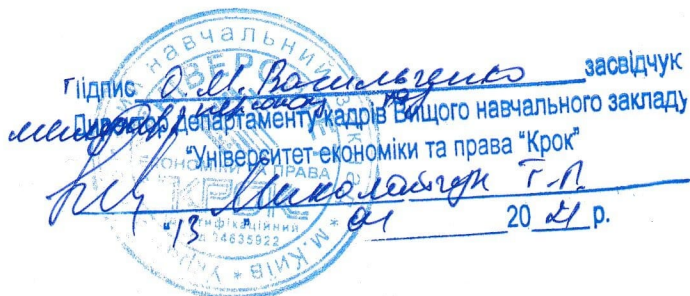 Підпис О.М. Васильченко засвідчую
менеджер
Директор департаменту кадрів Вищого навчального закладу
"Університет економіки та права "Крок"
Миколайчук Т.П.
"13" 01 2021 р.
навчальний
ЕКОНОМІКИ ТА ПРАВА
КРОК
Ідентифікаційний
код 04635922
* м. Київ * Укр